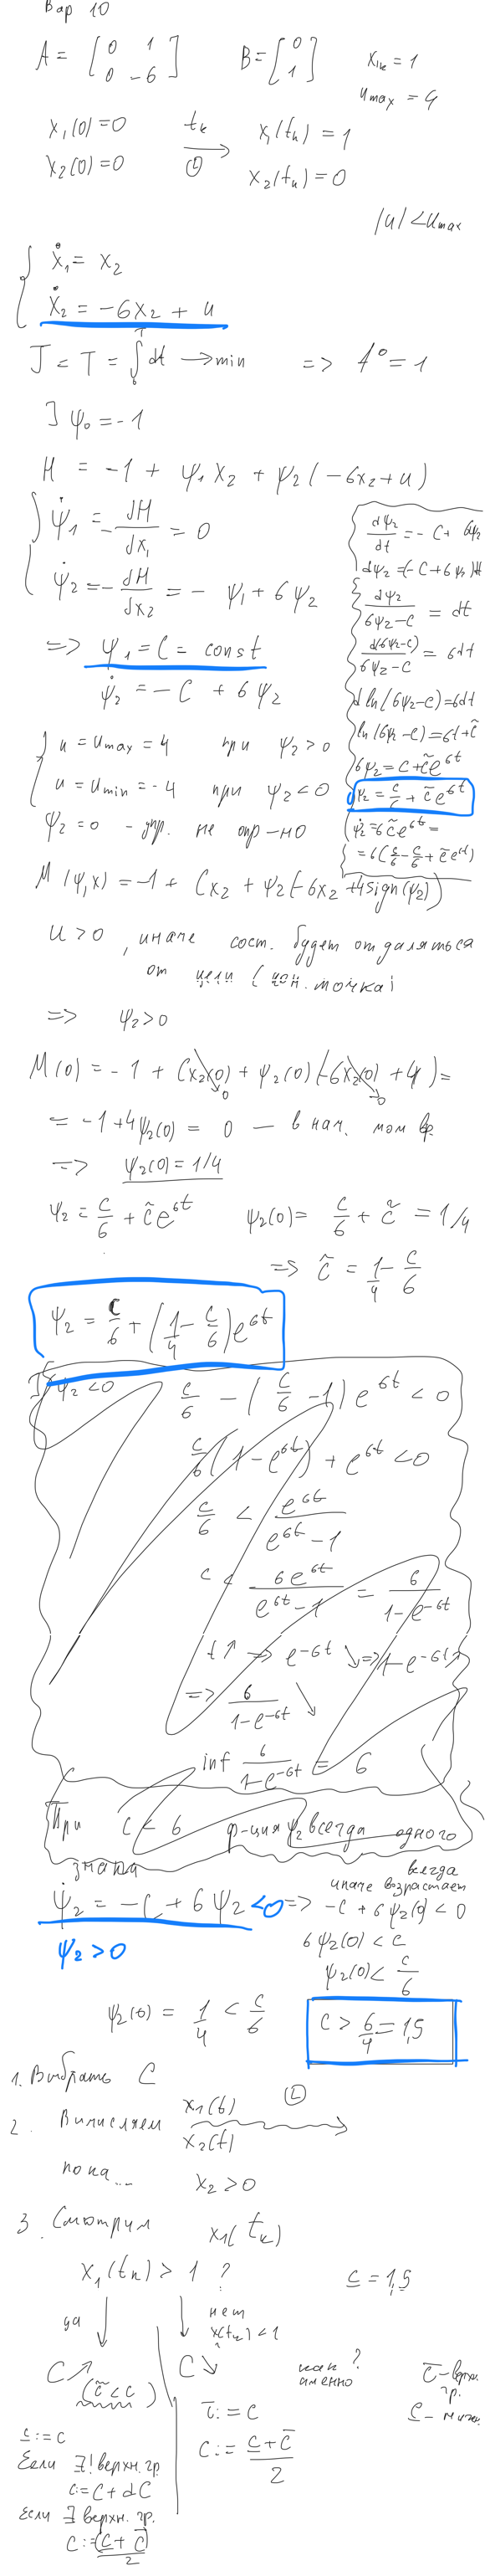 Вар 10
A = [0 1; 0 -6] B = [0; 1] x₁ₖ = 1
u max = 4
x₁(0)=0 tₖ x₁(tₖ) = 1
x₂(0)=0 → x₂(tₖ) = 0
|u| < u max
ẋ₁ = x₂
ẋ₂ = -6x₂ + u
J = T = ∫ dt → min => f⁰ = 1
] ψ₀ = -1
H = -1 + ψ₁ x₂ + ψ₂(-6x₂+u)
ψ̇₁ = -dH/dx₁ = 0
ψ̇₂ = -dH/dx₂ = -ψ₁ + 6ψ₂
=> ψ₁ = C = const
ψ̇₂ = -C + 6ψ₂
dψ₂/dt = -C + 6ψ₂
dψ₂ = (-C+6ψ₂)dt
dψ₂/(6ψ₂-C) = dt
d(6ψ₂-C)/(6ψ₂-C) = 6dt
d ln(6ψ₂-C) = 6dt
ln(6ψ₂-C) = 6t + c̃
6ψ₂ = C + c̃e^6t
ψ₂ = C/6 + c̃e^6t
ψ̇₂ = 6c̃e^6t =
= 6(C/6 - C/6 + c̃e^6t)
u = u max = 4 при ψ₂ > 0
u = u min = -4 при ψ₂ < 0
ψ₂ = 0 - упр. не опр-но
M(ψ,x) = -1 + Cx₂ + ψ₂(-6x₂ + 4sign(ψ₂))
u > 0, иначе сост. будет отдаляться
от цели (кон. точка)
=> ψ₂ > 0
M(0) = -1 + Cx₂(0) + ψ₂(0)(-6x₂(0) + 4) =
= -1 + 4ψ₂(0) = 0 — в нач. мом вр.
=> ψ₂(0) = 1/4
ψ₂ = C/6 + c̃e^6t ψ₂(0) = C/6 + c̃ = 1/4
=> c̃ = 1/4 - C/6
ψ₂ = C/6 + (1/4 - C/6)e^6t
] ψ₂ < 0 C/6 - (C/6 - 1)e^6t < 0
C/6(1 - e^6t) + e^6t < 0
C/6 < e^6t/(e^6t - 1)
C < 6e^6t/(e^6t - 1) = 6/(1 - e^-6t)
t↑ => e^-6t ↘ => 1 - e^-6t ↗
=> 6/(1 - e^-6t) ↘
inf 6/(1 - e^-6t) = 6
При C < 6 ф-ция ψ₂ всегда одного
знака
ψ̇₂ = -C + 6ψ₂ < 0 => -C + 6ψ₂(0) < 0
иначе всегда возрастает
ψ₂ > 0
6ψ₂(0) < C
ψ₂(0) < C/6
ψ₂(0) = 1/4 < C/6 C > 6/4 = 1,5
1. Выбрать C
2. Вычисляем x₁(t) x₂(t) →
пока... x₂ > 0
3. Смотрим x₁(tₖ)
x₁(tₖ) > 1 ? C̲ = 1,5
да нет
x(tₖ) < 1
C↗ C↘ как именно ?
(c̃ < C)
C̄ - верхн. гр.
C̲ - нижн.
C̲ := C C̄ := C
Если ∃! верхн. гр. C := (C̲ + C̄)/2
C := C + dC
Если ∃ верхн. гр.
C := (C̲ + C̄)/2